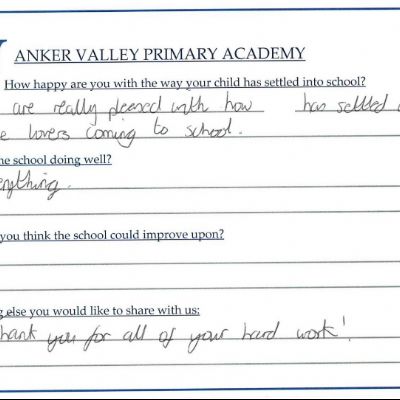 ANKER VALLEY PRIMARY ACADEMY
How happy are you with the way your child has settled into school?
are really pleased with how has settled
e lovers coming to school.
he school doing well?
erything.
you think the school could improve upon?
g else you would like to share with us:
hank you for all of your hard work!